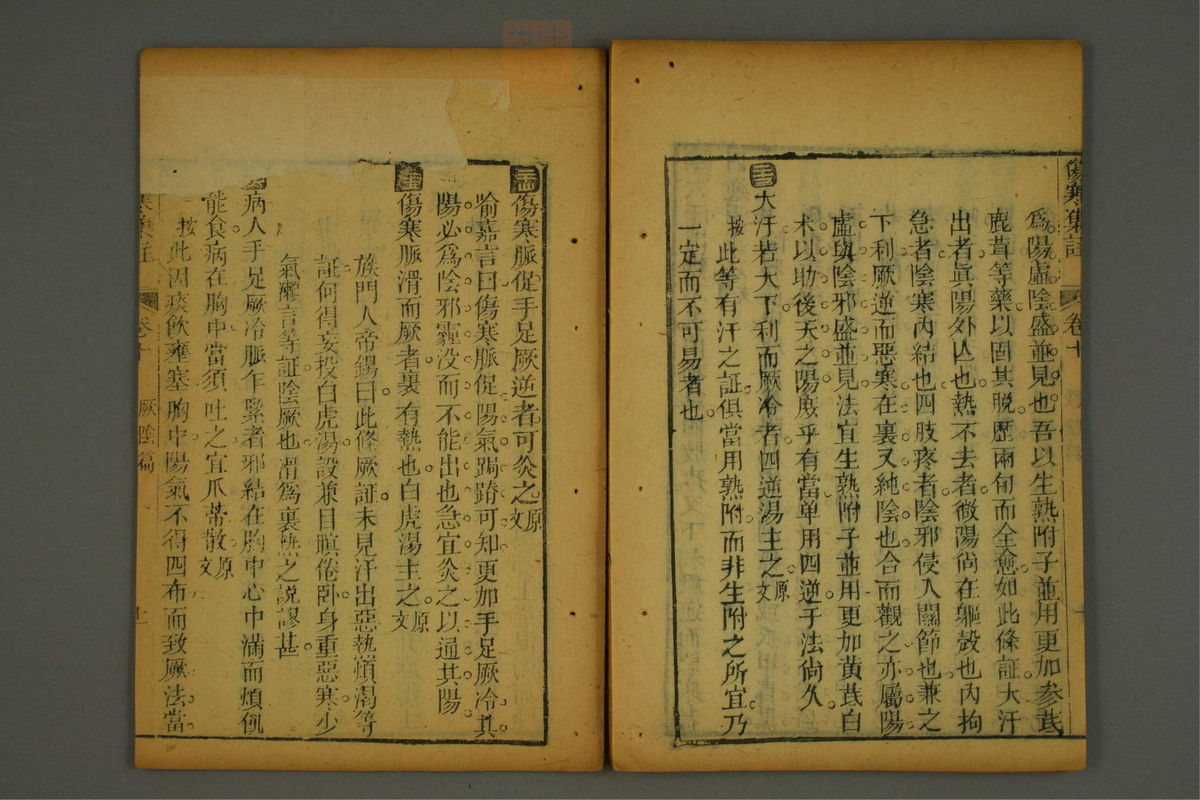 傷寒集註 卷十
爲陽虛陰盛並見也吾以生熟附子並用更加参茋
鹿茸等藥以固其脫歷兩旬而全愈如此條証大汗
出者眞陽外亾也熱不去者微陽尚在軀殼也內拘
急者陰寒內結也四肢疼者陰邪侵入關節也兼之
下利厥逆而惡寒在裏又純陰也合而觀之亦屬陽
虛與陰邪盛並見法宜生熟附子並用更加黄茋白
术以助後天之陽庶乎有當单用四逆于法尚欠
大汗若大下利而厥冷者四逆湯主之原文
按此等有汗之証俱當用熟附而非生附之所宜乃
一定而不可易者也
傷寒脈促手足厥逆者可灸之原文
喻嘉言曰傷寒脈促陽氣跼蹐可知更加手足厥冷其
陽必爲陰邪霾没而不能出也急宜灸之以通其陽
傷寒脈滑而厥者裏有熱也白虎湯主之原文
族門人帝錫曰此條厥証未見汗出惡熱煩渴等
証何得妄投白虎湯設兼目瞑倦卧身重惡寒少
氣懶言等証陰厥也滑爲裏熱之説謬甚
病人手足厥冷脈乍緊者邪結在胸中心中滿而煩飢
能食病在胸中當須吐之宜瓜蒂散原文
按此因痰飲壅塞胸中陽氣不得四布而致厥法當
集註 卷十 厥陰篇